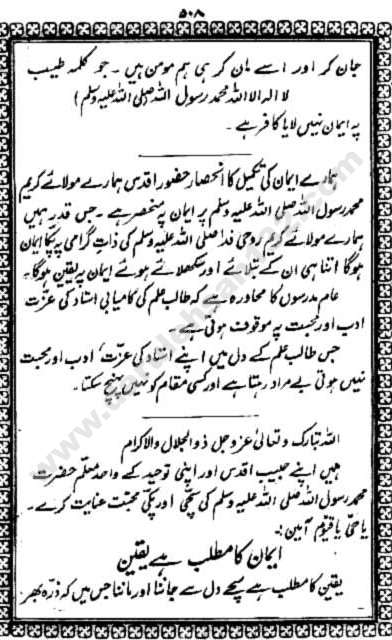 ۵۰۸
جان کر اور اسے مان کر ہی ہم مومن ہیں ۔ جو کلمہ طیب
لا الہ الا اللہ محمد رسول اللہ (صلی اللہ علیہ وسلم)
پہ ایمان نہیں لایا کافر ہے ۔
ہمارے ایمان کی تکمیل کا انحصار حضور اقدس ہمارے مولائے کریم
محمد رسول اللہ صلی اللہ علیہ وسلم پر ایمان پہ منحصر ہے ۔ جس قدر ہمیں
ہمارے مولائے کریم روحی فداہ صلی اللہ علیہ وسلم کی ذات گرامی پر پکا ایمان
ہوگا اتنا ہی ان کے بتلائے اور سکھلائے ہوئے ایمان پر یقین ہوگا ۔
عام مدرسوں کا محاورہ ہے کہ طالب علم کی کامیابی استاد کی عزت
ادب اور محبت پہ موقوف ہوتی ہے ۔
جس طالب علم کے دل میں اپنے استاد کی عزت ادب اور محبت
نہیں ہوتی بے مراد رہتا ہے اور کسی مقام کو نہیں پہنچ سکتا ۔
اللہ تبارک و تعالیٰ عز و جل ذوالجلال والاکرام
ہمیں اپنے حبیب اقدس اور اپنی توحید کے واحد معلم حضرت
محمد رسول اللہ صلی اللہ علیہ وسلم کی سچی اور پکی محبت عنایت کرے ۔
یا حی یا قیوم آمین :۔
ایمان کا مطلب ہے یقین
یقین کا مطلب ہے سچے دل سے جاننا اور ماننا جس میں کہ ذرہ بھر